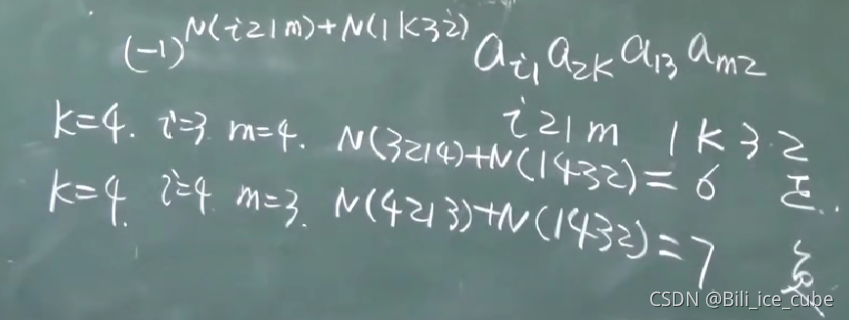 (-1)^{N(i21m)+N(1k32)} a_{i1} a_{2k} a_{13} a_{m2}
i21m 1k32
k=4. i=3 m=4. N(3214)+N(1432)=6 正..
k=4. i=4 m=3. N(4213)+N(1432)=7 负
CSDN @Bili_ice_cube